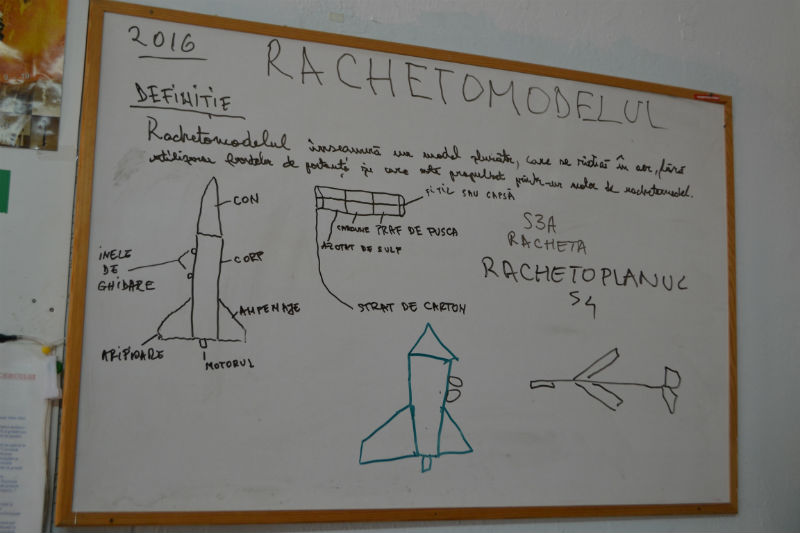 2016
RACHETOMODELUL
DEFINITIE
Rachetomodelul înseamnă un model zburător, care se ridică în aer, fără
utilizarea forțelor de portanță și care este propulsat printr-un motor de rachetomodel.
CON
INELE
DE
GHIDARE
CORP
AMPENAJE
ARIPIOARE
MOTORUL
FITIL SAU CAPSĂ
CARBUNE PRAF DE PUSCA
AZOTAT DE SULF
STRAT DE CARTON
S3A
RACHETA
RACHETOPLANUL
S4